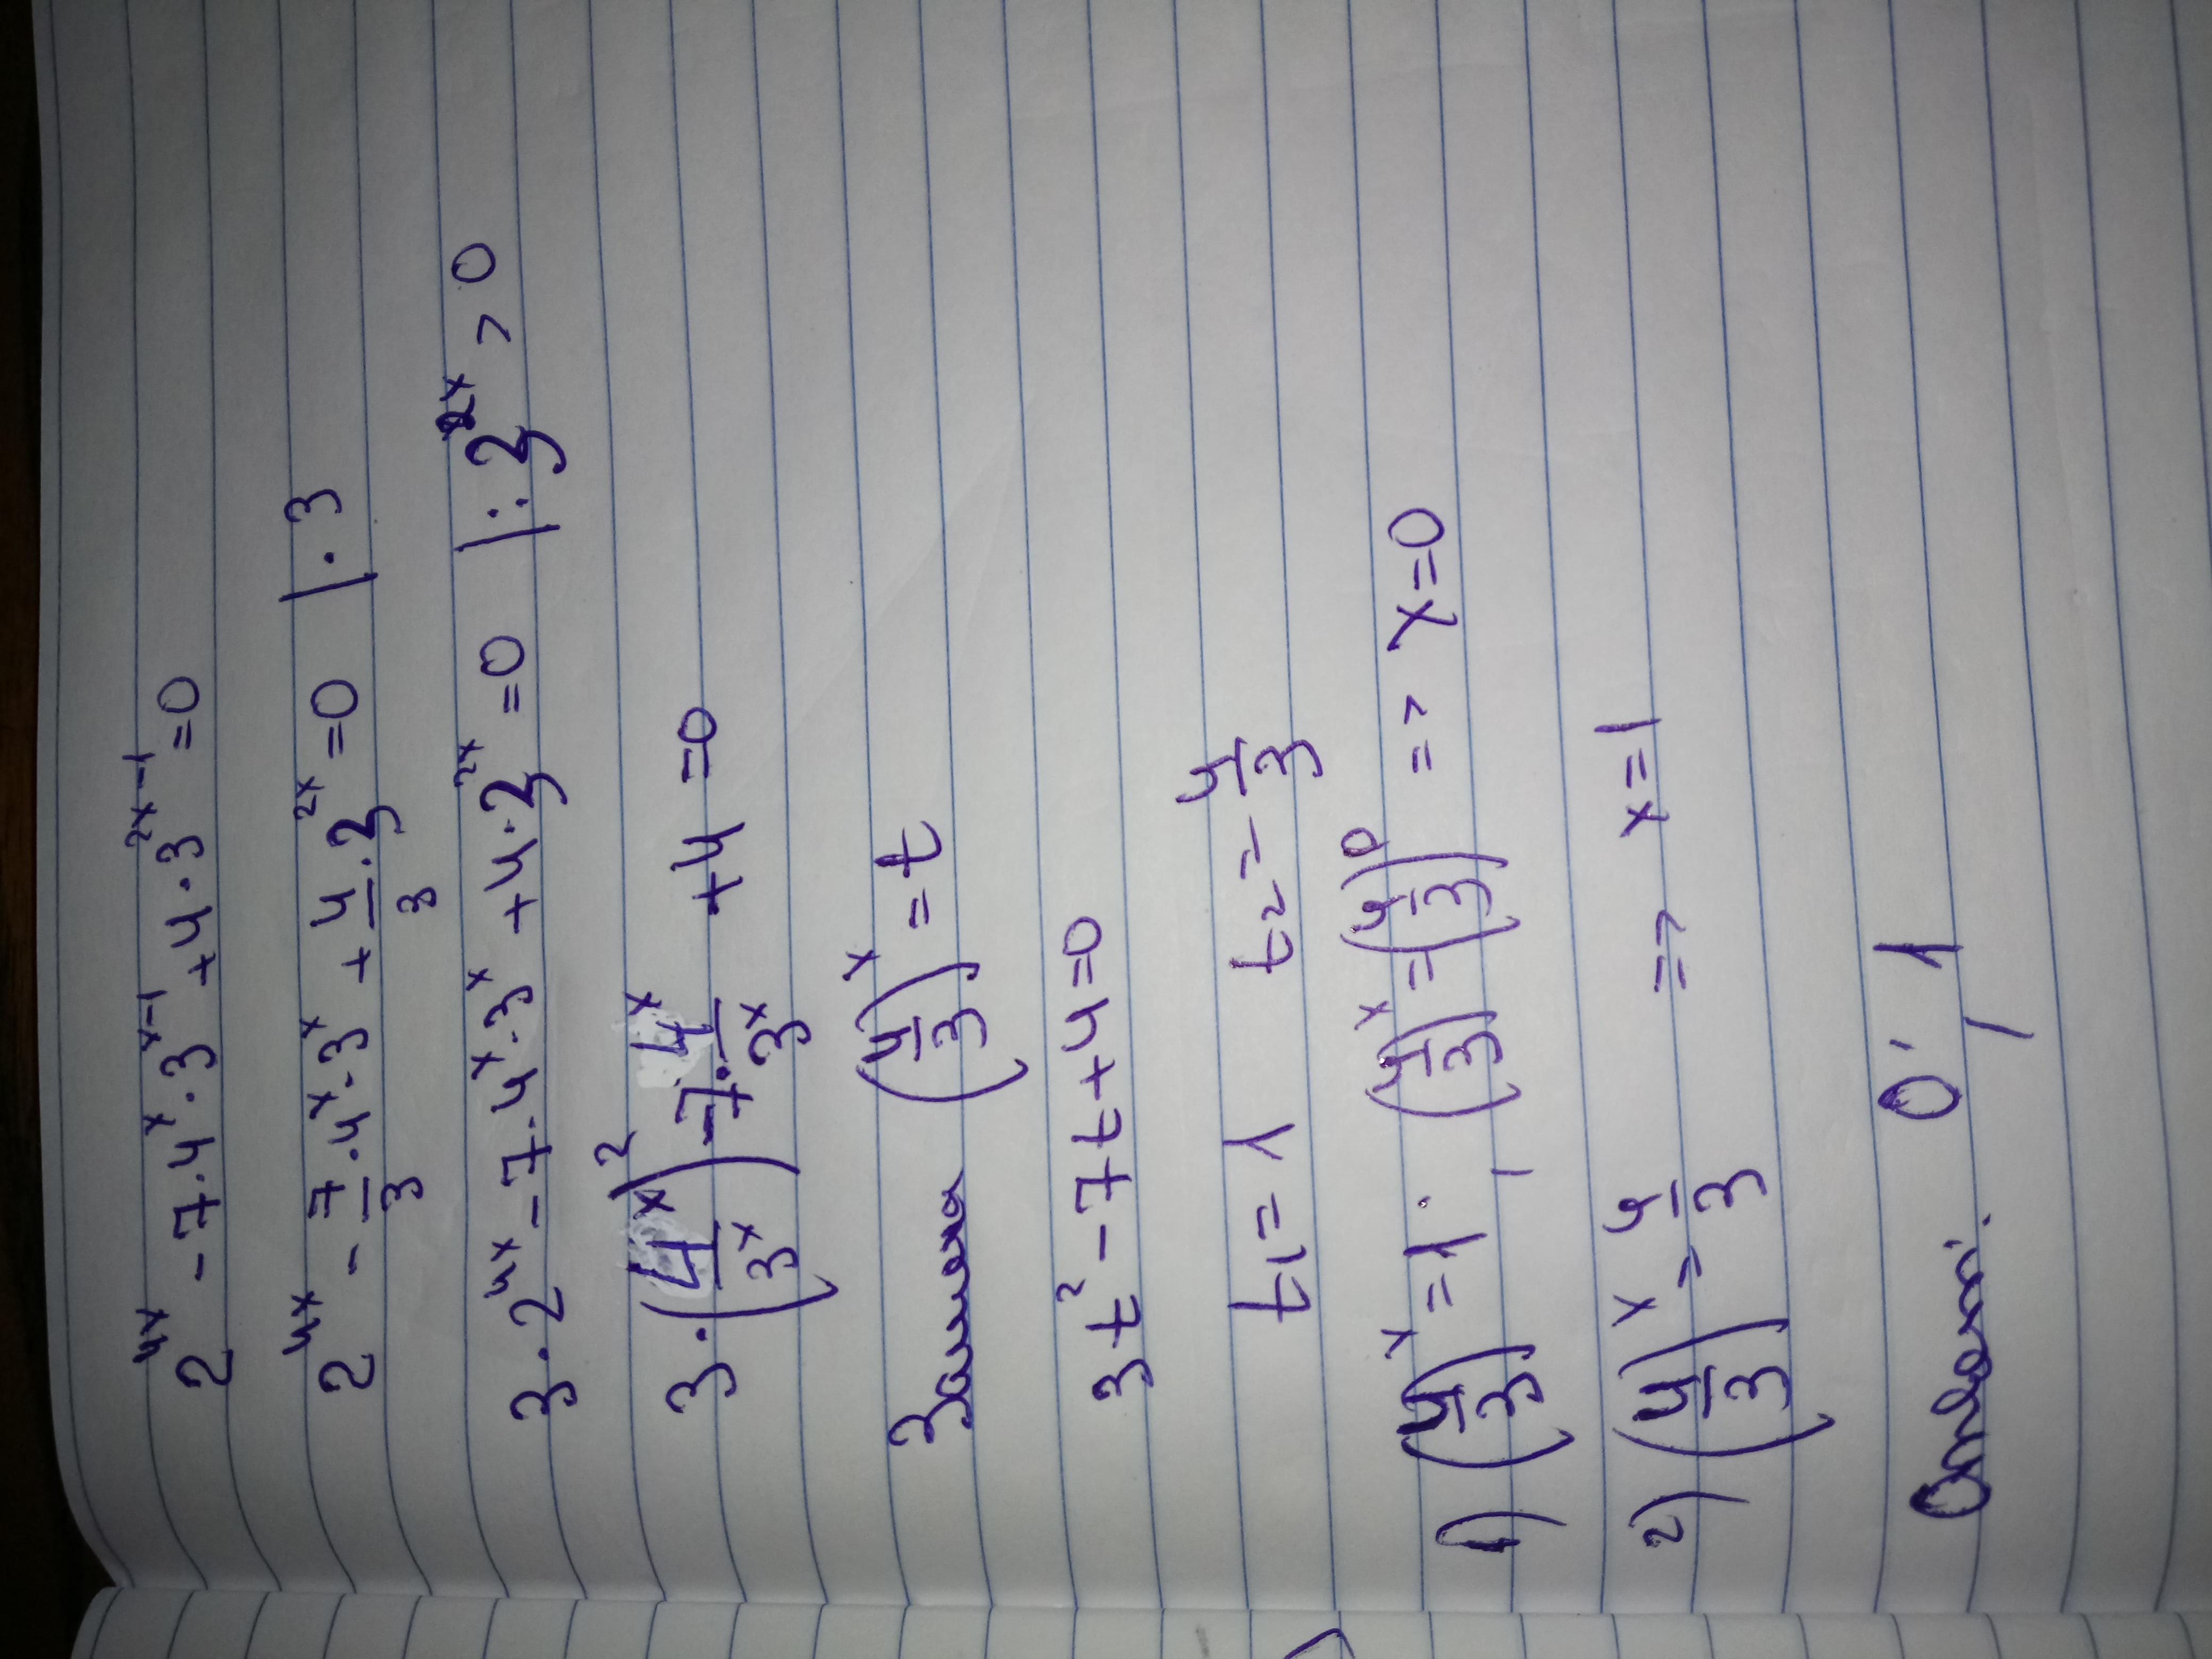 2^{4x} - 7·4^x·3^{x-1} + 4·3^{2x-1} = 0
2^{4x} - 7/3·4^x·3^x + 4/3·3^{2x} = 0 | · 3
3·2^{4x} - 7·4^x·3^x + 4·3^{2x} = 0 | : 3^{2x} > 0
3·(4^x/3^x)^2 - 7·4^x/3^x + 4 = 0
Замена (4/3)^x = t
3t^2 - 7t + 4 = 0
t1 = 1 t2 = 4/3
1) (4/3)^x = 1 , (4/3)^x = (4/3)^0 => x=0
2) (4/3)^x = 4/3 => x=1
Ответ: 0; 1